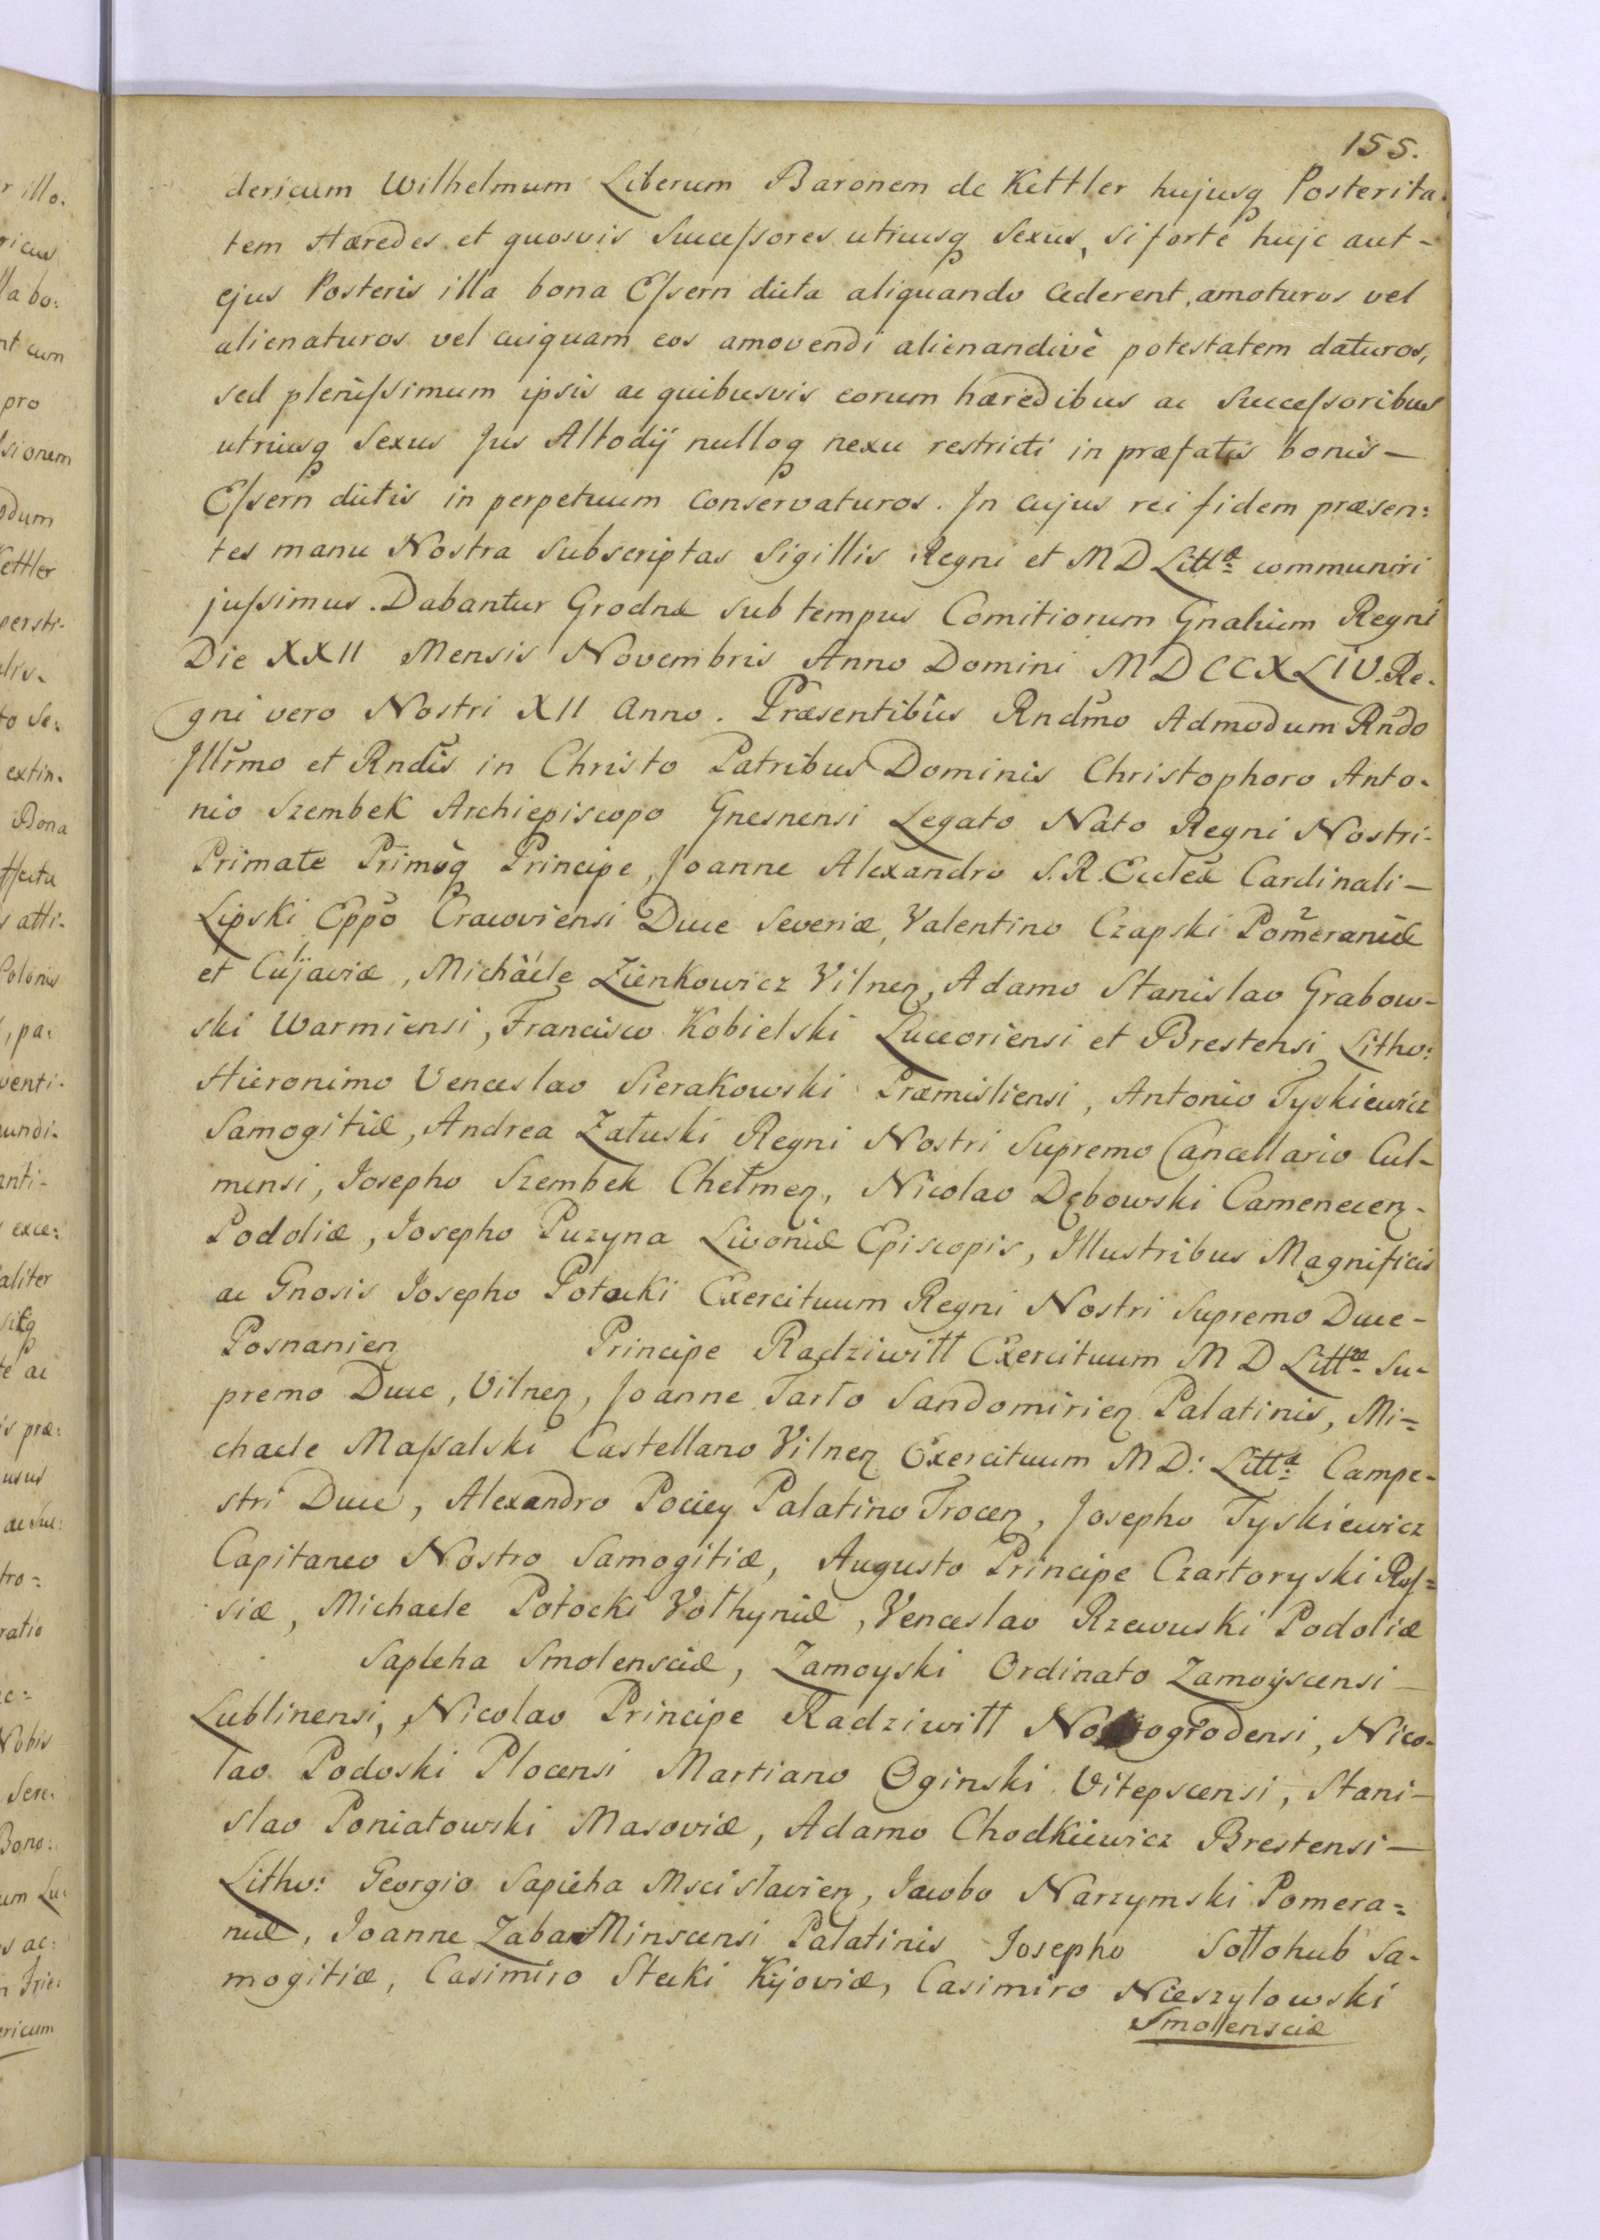 155.
dericum Wilhelmum Liberum Baronem de Kettler hujusq Posterita-
tem Hæredes et quosvis Succeſsores utriusq Sexus, si forte huic aut-
ejus Posteris illa bona Eſsern dicta aliquando cederent, amoturos vel
alienaturos vel cuiquam eos amovendi alienandivè potestatem daturos,
sed pleniſsimum ipsis ac quibusvis eorum hæredibus ac Succeſsoribus
utriusq Sexus Jus Allodij nulloq nexu restricti in præfatis bonis —
Eſsern dictis in perpetuum conservaturos. In cujus rei fidem præsen:
tes manu Nostra Subscriptas Sigillis Regni et M D Littæ communiri
juſsimus. Dabantur Grodnæ sub tempus Comitiorum Gnalium Regni
Die XXII Mensis Novembris Anno Domini MDCCXLIV. Re-
gni vero Nostri XII Anno. Præsentibus Rndmo Admodum Rndo
Illrmo et Rndis in Christo Patribus Dominis Christophoro Anto-
nio Szembek Archiepiscopo Gnesnensi Legato Nato Regni Nostri-
Primate Primoq Principe, Joanne Alexandro S. R. Eccleæ Cardinali —
Lipski Eppo Cracoviensi Duce Severiæ, Valentino Czapski Pomeraniæ
et Cujaviæ, Michaele Zienkowicz Vilnen, Adamo Stanislao Grabow-
ski Warmiensi, Francisco Kobielski Luceoriensi et Brestensi Lithv:
Hieronimo Venceslao Sierakowski Præmisliensi, Antonio Tyskiewicz
Samogitiæ, Andrea Załuski Regni Nostri Supremo Cancellario Cul-
mensi, Josepho Szembek Chełmen, Nicolao Dębowski Camenecen-
Podoliæ, Josepho Puzyna Livoniæ Episcopis, Illustribus Magnificis
ac Gnosis Josepho Potocki Exercituum Regni Nostri Supremo Duce-
Posnanien Principe Radziwiłł Exercituum M D Littæ Su-
premo Duce, Vilnen, Joanne Tarło Sandomirien Palatinis, Mi=
chaele Maſsalski Castellano Vilnen Exercituum M D: Littæ Campe-
stri Duce, Alexandro Pociey Palatino Trocen, Josepho Tyskiewicz
Capitaneo Nostro Samogitiæ, Augusto Principe Czartoryski Ruſ=
siæ, Michaele Potocki Volhyniæ, Venceslao Rzewuski Podoliæ
Sapieha Smolensciæ, Zamoyski Ordinato Zamoyscensi —
Lublinensi, Nicolao Principe Radziwiłł Novogrodensi, Nico-
lao Podoski Plocensi Martiano Oginski Vitepscensi, Stani —
slao Poniatowski Masoviæ, Adamo Chodkiewicz Brestensi —
Lithv: Georgio Sapieha Mscislavien, Jacobo Narzymski Pomera=
niæ, Joanne Zaba Minscensi Palatinis Josepho Sołłohub Sa-
mogitiæ, Casimiro Stecki Kijoviæ, Casimiro Nieszytowski
Smolensciæ